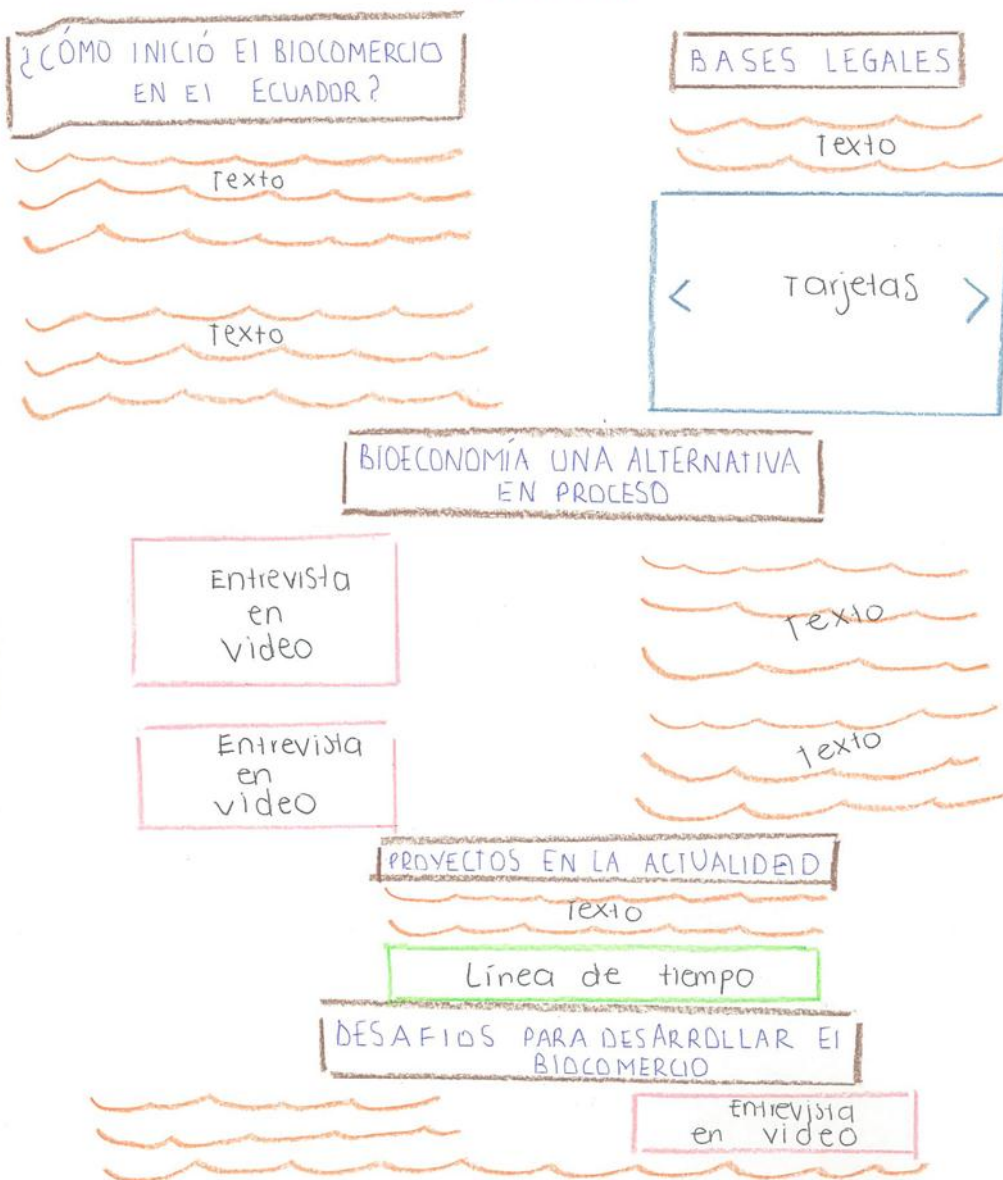 ¿CÓMO INICIÓ El BIOCOMERCIO
EN El ECUADOR?
Texto
Texto
BASES LEGALES
Texto
< Tarjetas >
BIOECONOMÍA UNA ALTERNATIVA
EN PROCESO
Entrevista
en
video
Entrevista
en
video
Texto
Texto
PROYECTOS EN LA ACTUALIDAD
Texto
Línea de tiempo
DESAFIOS PARA DESARROLLAR El
BIOCOMERCIO
Entrevista
en video